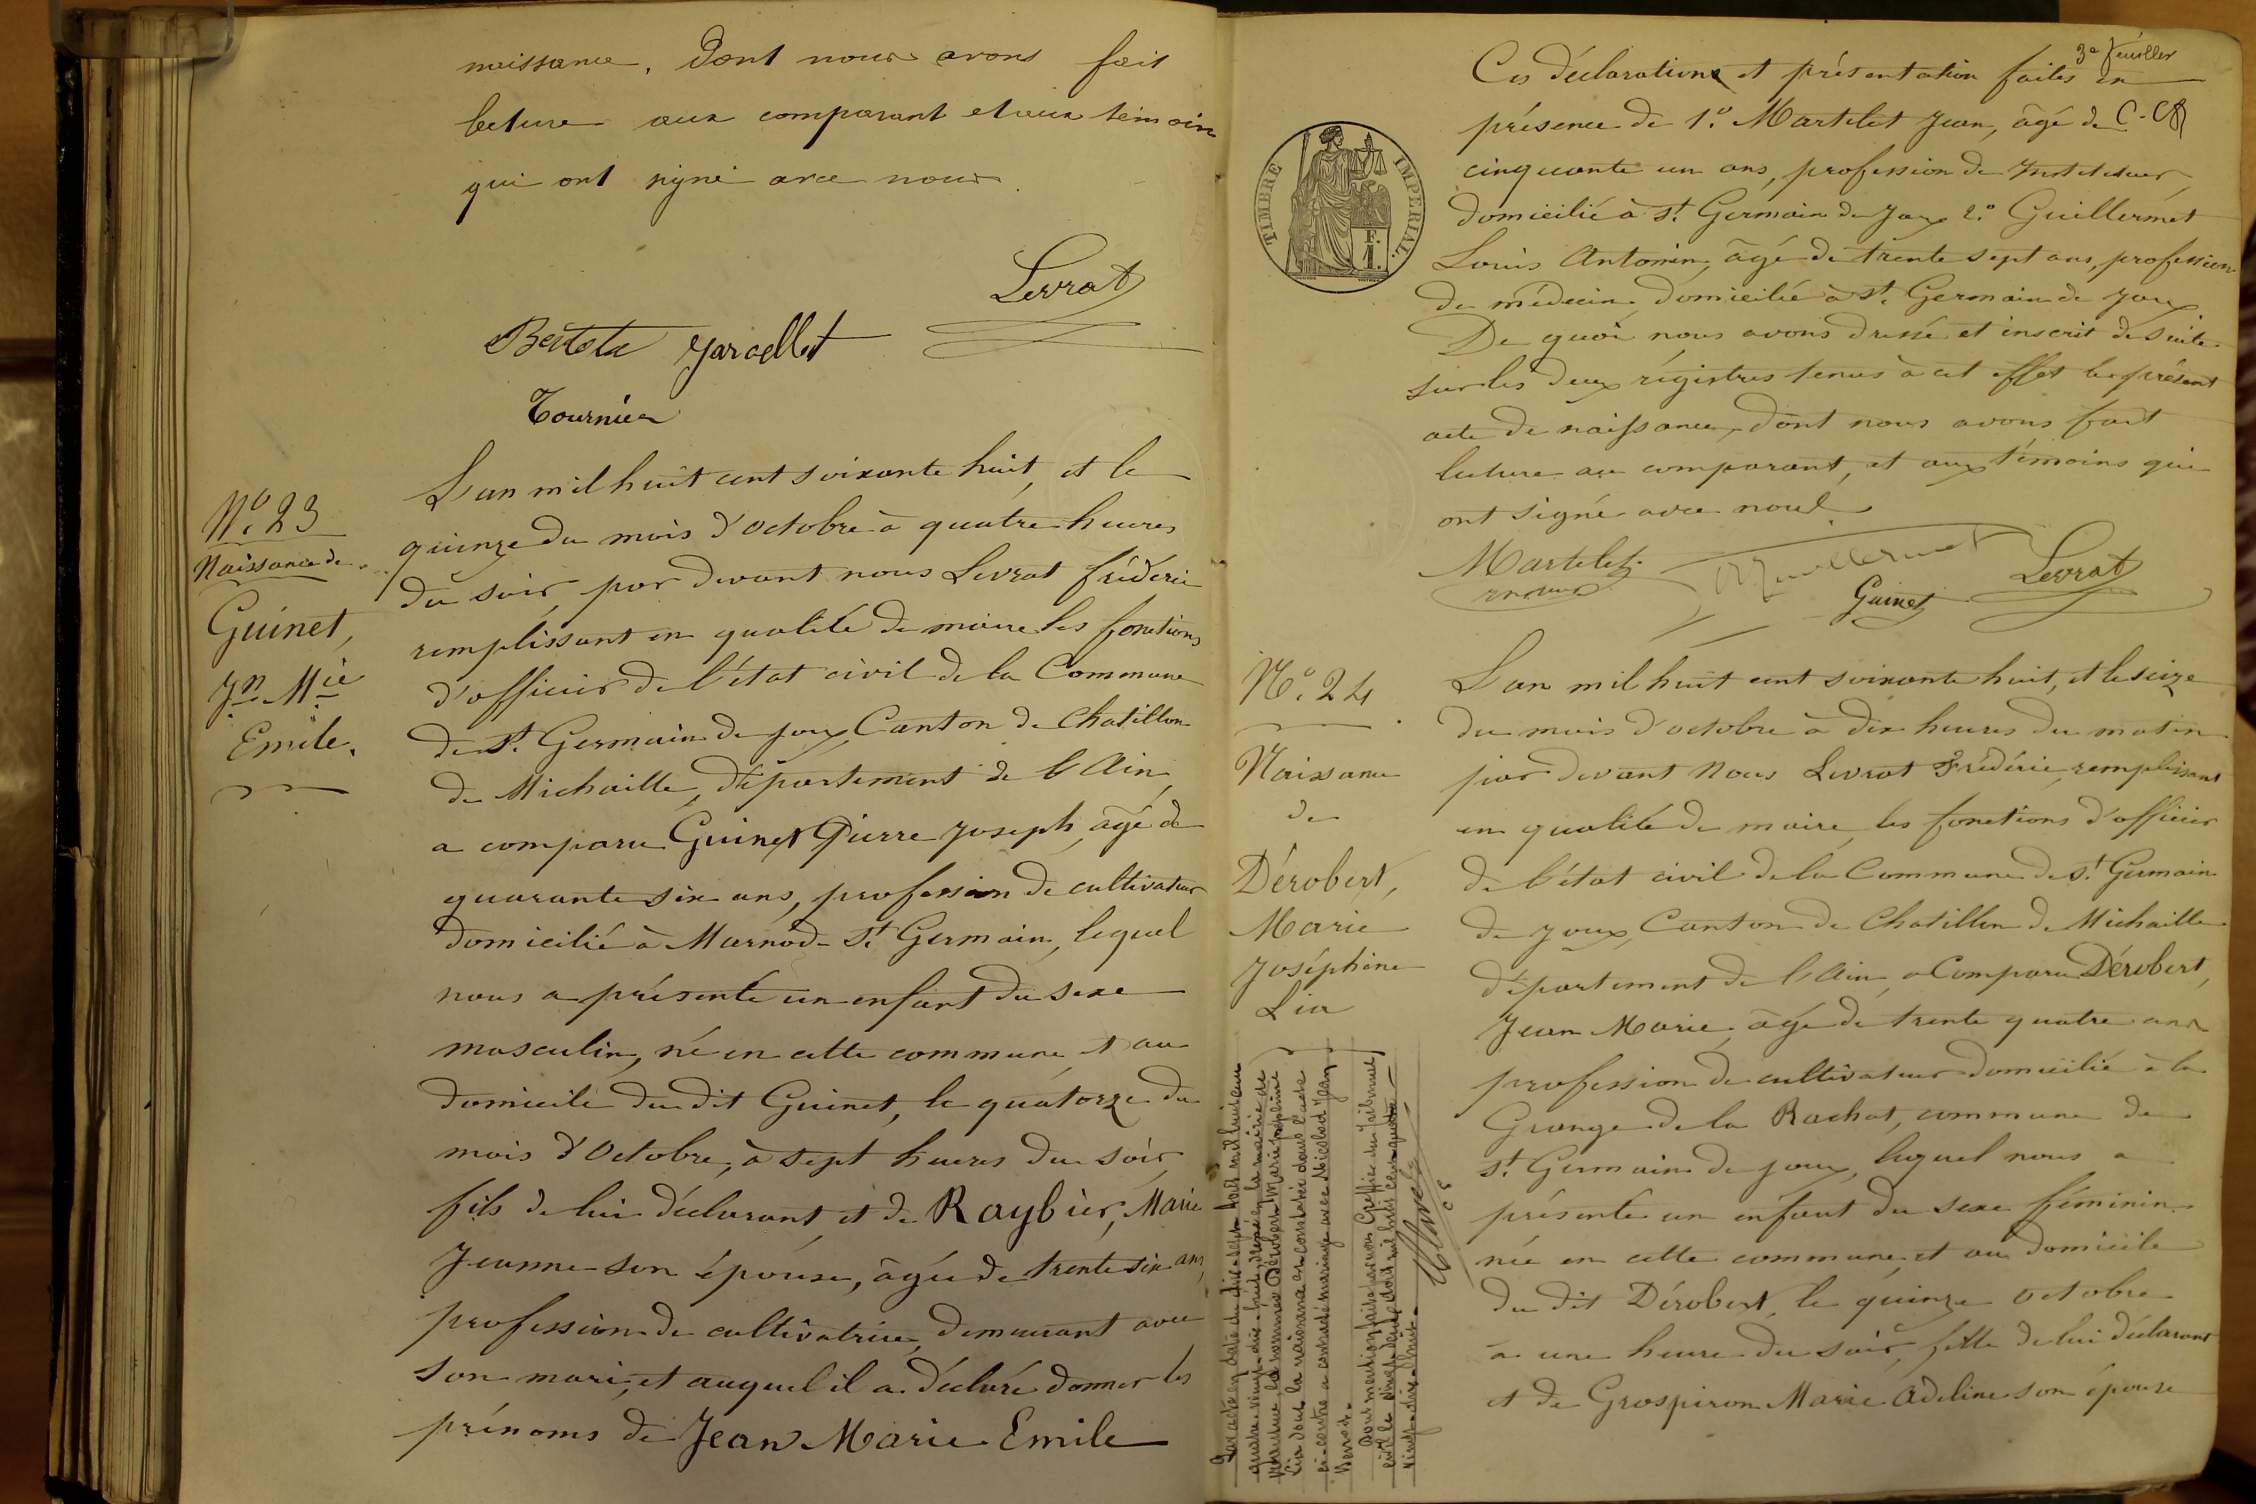 naissance. Dont nous avons fait
lecture aux comparant et aux témoins
qui ont signé avec nous.
Levrat
Tournier
N.º 23
Naissance de
Guinet,
Jn Mie
Emile.
L'an mil huit cent soixante huit, et le
quinze du mois d'octobre à quatre heures
du soir, par devant nous Levrat fréderic
remplissant en qualité de maire les fonctions
d'officier de l'état civil de la Commune
de St. Germain de joux, Canton de Chatillon
de Michaille, département de l'Ain,
a comparu Guinet Pierre Joseph, âgé de
quarante six ans, profession de cultivateur
domicilié à Marnod- St. Germain, lequel
nous a présenté un enfant du sexe
masculin, né en cette commune, et au
domicile du dit Guinet, le quatorze du
mois d'Octobre, à sept heures du soir,
fils de lui déclarant, et de Raybier, Marie
Jeanne son épouse, âgée de trente six ans,
profession de cultivatrice, demeurant avec
son mari, et auquel il a déclaré donner les
prénoms de Jean Marie Emile
3e feuillet
Ces déclarations et présentation faites en
présence de 1.º Martelet Jean, âgé de
cinquante un ans, profession de Instituteur,
domicilié à St. Germain de Joux 2.º Guillermet
Louis Antonin, âgé de trente sept ans, profession
de médecin, domicilié à St. Germain de Joux
De quoi nous avons dressé et inscrit de suite
sur les deux régistres tenus à cet effet le présent
acte de naissance, dont nous avons fait
lecture au comparant, et aux témoins qui
ont signé avec nous.
TIMBRE IMPERIAL.
F.
1.
Martelet
Guillermet
Guinet
Levrat
N.º 24
Naissance
de
Dérobert,
Marie
Joséphine
Lia
L'an mil huit cent soixante huit, et le seize
du mois d'octobre à dix heures du matin
par devant Nous Levrat Frédéric, remplissant
en qualité de maire, les fonctions d'officier
de l'état civil de la Commune de St. Germain
de joux, Canton de Chatillon de Michaille
département de l'Ain, a Comparu Dérobert,
Jean Marie, âgé de trente quatre ans
profession de cultivateur domicilié à la
Grange de la Rachat, commune de
St. Germain de joux, lequel nous a
présenté un enfant du sexe féminin
née en cette commune, et au domicile
du dit Dérobert, le quinze octobre
à une heure du soir, fille de lui déclarant
et de Grospiron Marie Adeline son épouse
Par acte en date du dix-sept août mil huit cent
quatre-vingt-dix-huit, dressé en la mairie de
la nommée Dérobert Marie Joséphine
Lia dont la naissance est constatée dans l'acte
ci-contre a contracté mariage avec Nicolod Jean
Benoit.
Pour mention faite par nous Greffier du Tribunal
civil le
vingt-dix-huit.